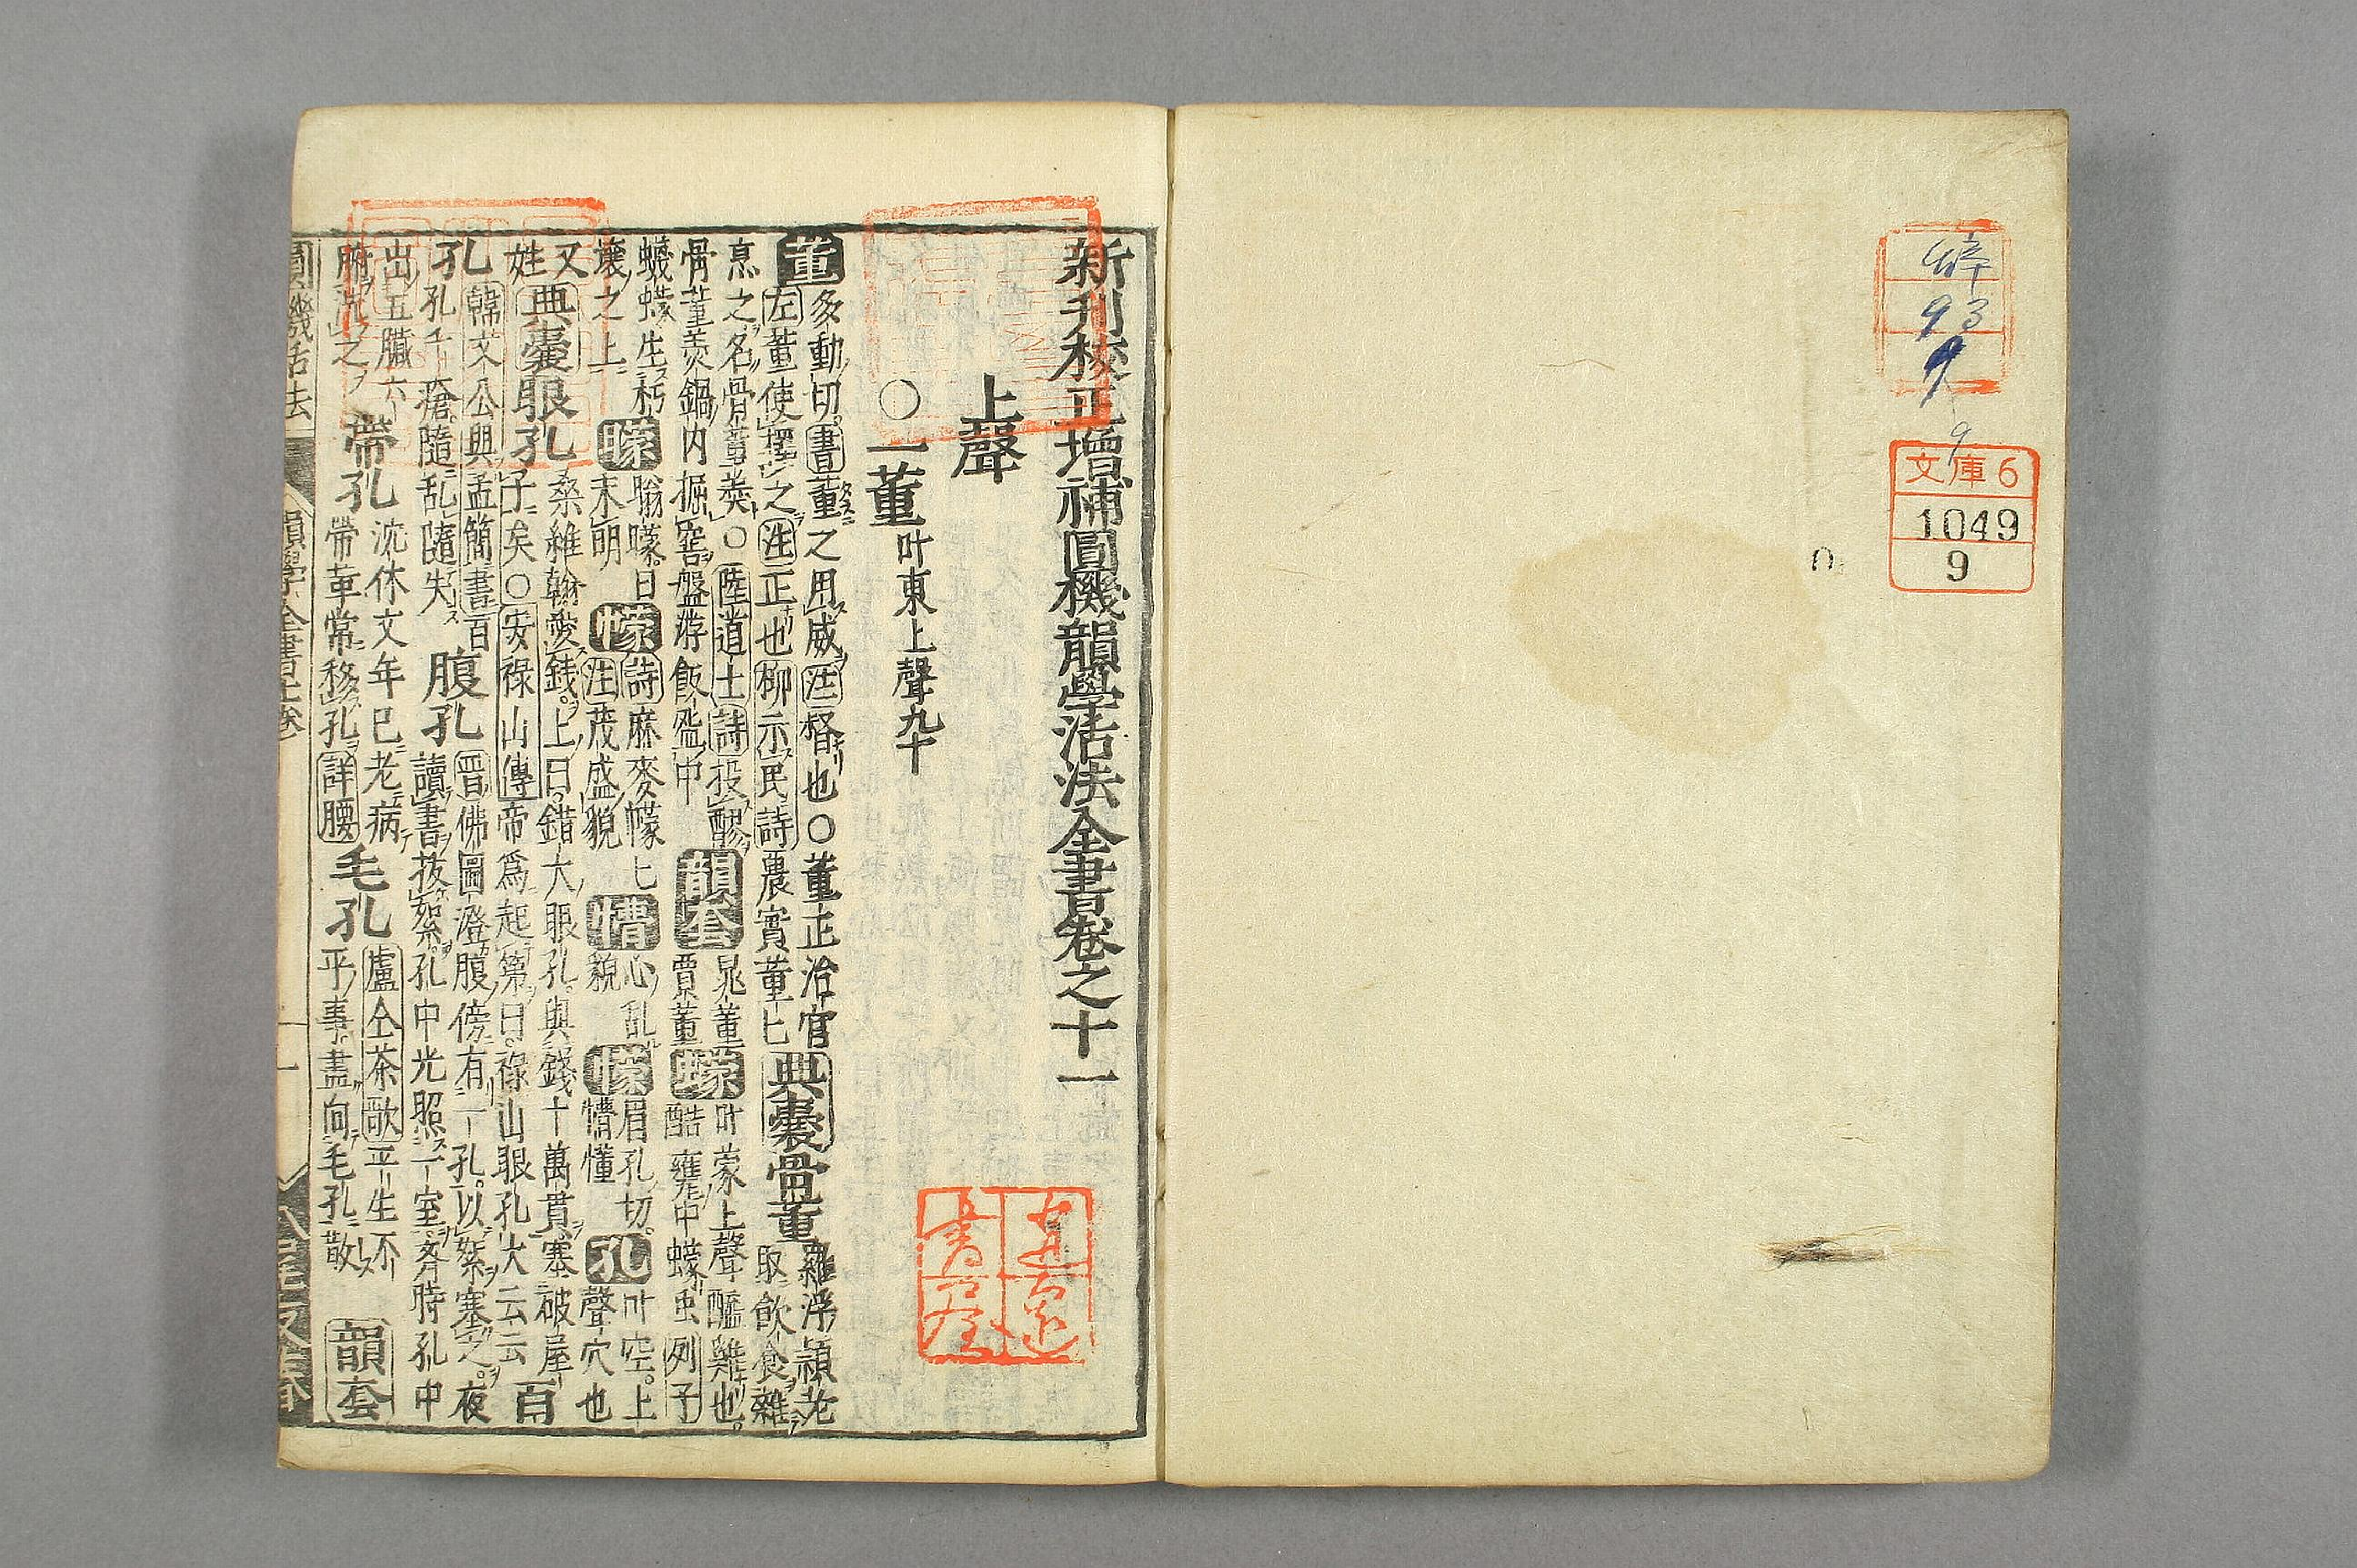 文庫6
1049
9
新刊校正增補圓機韻學活法全書卷之十一
上聲
○一董叶東上聲九十
董多動切。書董之用威注格也○董正治官
左董使擇之注正也柳示民詩農實董匕
典囊骨董羅浮頴老
取飮食雜
烹之名骨董羮○陸道士詩投醪
骨董羮鍋内掘窖盤游飯
韻套晁董
賈董
蠓叶蒙上聲醯雞也。
酷甕中蠓虫列子
蠛蠓生朽
壤之上
矇䀧矇。日
未明
幪詩麻麥幪匕
注茂盛貌
懵心乱
貌
懞眉孔切。
懵懂
孔叶空。上
聲穴也
又
姓
典囊眼孔桑維翰愛錢。上曰錯大眼孔與錢十萬貫塞破屋
子矣○安祿山傳帝爲起第曰。祿山眼孔大云云
百
孔韓文公與孟簡書百
孔千瘡。隨乱隨失
腹孔晋佛圖澄腹傍有一孔。以絮塞之。夜
讀書抜絮孔中光照一室斉時孔中
出五臟六
腑洗之
帶孔沈休文年已老病
帶革常移孔詳腰
毛孔盧仝茶歌平生不
平事盡向毛孔散
韻套
圓機活法
韻學全書十一卷
一